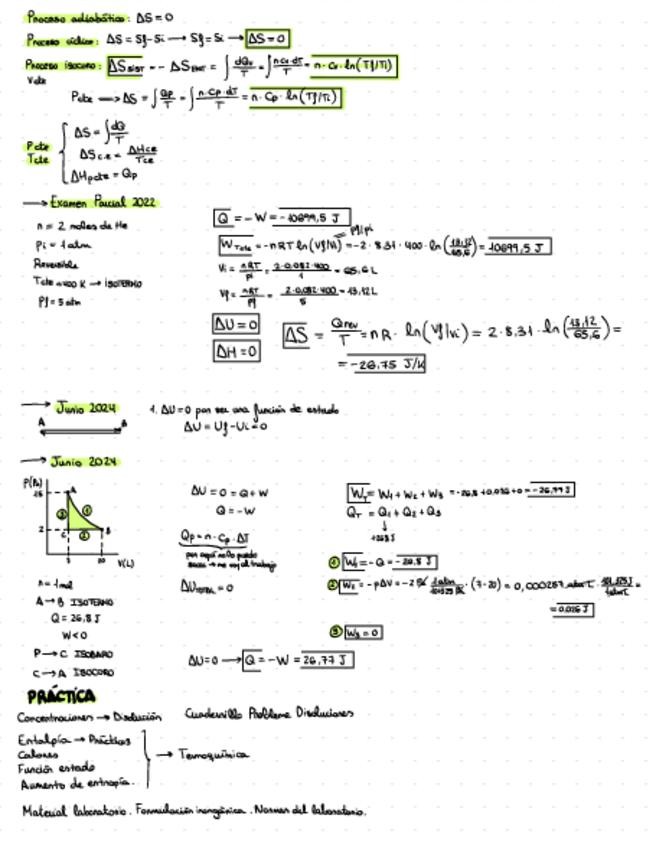 Proceso adiabático: ΔS = 0
Proceso cíclico: ΔS = Sf - Si → Sf = Si → ΔS = 0
Proceso isocoro: ΔS SIST = - ΔS ENT = ∫ dQv/T = ∫ n·Cv·dT/T = n·Cv·ln(Tf/Ti)
Vcte
Pcte → ΔS = ∫ Qp/T = ∫ n·Cp·dT/T = n·Cp·ln(Tf/Ti)
Pcte
Tcte
ΔS = ∫ dQ/T
ΔS c.e = ΔHce/Tce
ΔHpcte = Qp
→ Examen Parcial 2022
n = 2 moles de He
Pi = 1 atm
Reversible
Tcte = 400 K → ISOTERMO
Pf = 5 atm
Q = -W = -10699,5 J
Pf/Pi
W Tcte = -nRT ln(Vf/Vi) = -2·8.31·400·ln(13,12/65,6) = 10699,5 J
Vi = nRT/Pi = 2·0.082·400/1 = 65,6 L
Vf = nRT/Pf = 2·0.082·400/5 = 13,12 L
ΔU = 0
ΔH = 0
ΔS = Qrev/T = nR·ln(Vf/Vi) = 2·8.31·ln(13,12/65,6) =
= -26,75 J/K
→ Junio 2024
A B
1. ΔU = 0 por ser una función de estado
ΔU = Uf - Ui = 0
→ Junio 2024
P(Pa)
A
3 1
2 C 2 B
20 V(L)
n = 1 mol
A → B ISOTERMO
Q = 26,8 J
W < 0
P → C ISOBARO
C → A ISOCORO
ΔU = 0 = Q + W
Q = -W
Qp = n·Cp·ΔT
ΔU TOTAL = 0
ΔU = 0 → Q = -W = 26,77 J
WT = W1 + W2 + W3 = -26,8 + 0,036 + 0 = -26,77 J
QT = Q1 + Q2 + Q3
① W1 = -Q = -26,8 J
② W2 = -pΔV = -2 Pa · 1 atm/101325 Pa · (7-20) = 0,000257 atm·L · 101,325 J/1 atm·L =
= 0,026 J
③ W3 = 0
PRÁCTICA
Concentraciones → Disolución Cuadernillo Problema Disoluciones
Entalpía → Prácticas
Calores
Función estado
Aumento de entropía.
→ Termoquímica
Material laboratorio. Formulación inorgánica. Normas del laboratorio.